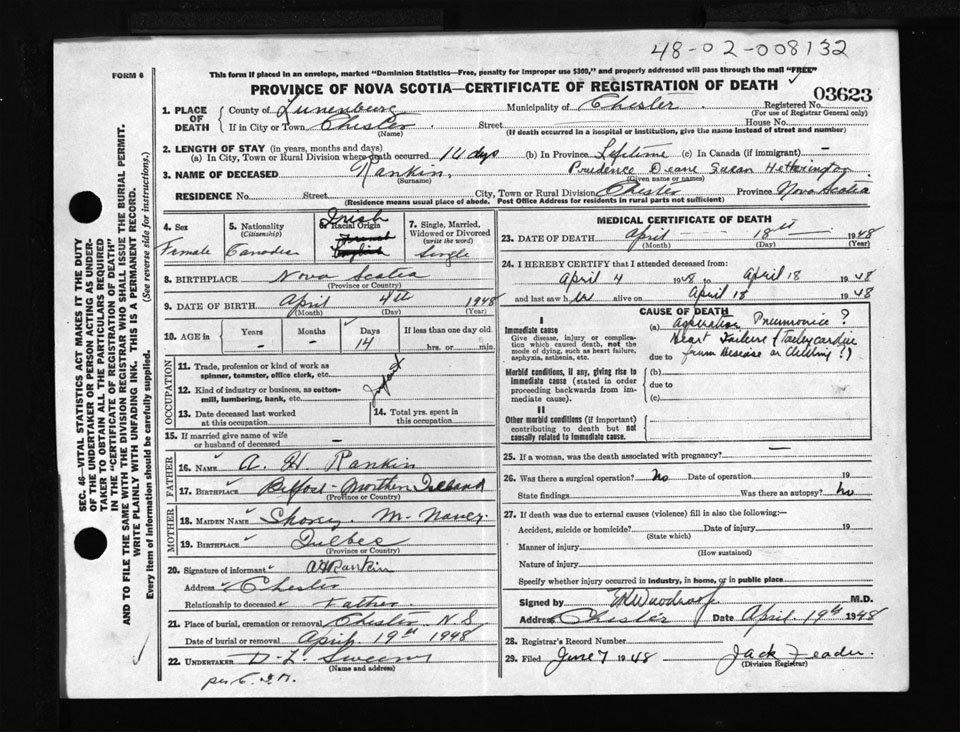 48-02-008132
FORM 6
This form if placed in an envelope, marked "Dominion Statistics—Free, penalty for improper use $300," and properly addressed will pass through the mail "FREE"
PROVINCE OF NOVA SCOTIA—CERTIFICATE OF REGISTRATION OF DEATH
03623
1. PLACE OF DEATH
County of Lunenburg Municipality of Chester Registered No.
(For use of Registrar General only)
If in City or Town Chester Street House No.
(Name) (If death occurred in a hospital or institution, give the name instead of street and number)
2. LENGTH OF STAY (in years, months and days)
(a) In City, Town or Rural Division where death occurred 14 dys (b) In Province Lifetime (c) In Canada (if immigrant) —
3. NAME OF DECEASED Rankin, Prudence Deane Susan Hetherington
(Surname) (Given name or names)
RESIDENCE No. Street City, Town or Rural Division Chester Province Nova Scotia
(Residence means usual place of abode. Post Office Address for residents in rural parts not sufficient)
4. Sex
Female
5. Nationality
(Citizenship)
Canadian
Irish
6. Racial Origin
7. Single, Married, Widowed or Divorced
(write the word)
Single
8. BIRTHPLACE Nova Scotia
(Province or Country)
9. DATE OF BIRTH April 4th 1948
(Month) (Day) (Year)
10. AGE in
Years Months Days If less than one day old
— — 14 hrs. or min.
OCCUPATION
11. Trade, profession or kind of work as
spinner, teamster, office clerk, etc.
12. Kind of industry or business, as cotton-
mill, lumbering, bank, etc.
Infant
13. Date deceased last worked
at this occupation
14. Total yrs. spent in
this occupation
15. If married give name of wife
or husband of deceased —
FATHER
16. Name A. H. Rankin
17. Birthplace Belfast - Northern Ireland
(Province or Country)
MOTHER
18. Maiden Name Shorey M. Nancy
19. Birthplace Quebec
(Province or Country)
20. Signature of informant AHRankin
Address Chester
Relationship to deceased Father
21. Place of burial, cremation or removal Chester N.S
Date of burial or removal April 19th 1948
22. Undertaker D. L.
(Name and address)
MEDICAL CERTIFICATE OF DEATH
23. DATE OF DEATH April 18th 1948
(Month) (Day) (Year)
24. I HEREBY CERTIFY that I attended deceased from:
April 4 1948 to April 18 1948
and last saw her alive on April 18 1948
CAUSE OF DEATH
I
Immediate cause
Give disease, injury or complication which caused death, not the mode of dying, such as heart failure, asphyxia, asthenia, etc.
(a) Pneumonia ?
Heart Failure
due to from
Morbid conditions, if any, giving rise to immediate cause (stated in order proceeding backwards from immediate cause).
(b)
due to
(c)
II
Other morbid conditions (if important) contributing to death but not causally related to immediate cause.
25. If a woman, was the death associated with pregnancy? —
26. Was there a surgical operation? No Date of operation 19
State findings Was there an autopsy? No
27. If death was due to external causes (violence) fill in also the following:—
Accident, suicide or homicide? Date of injury 19
(State which)
Manner of injury
(How sustained)
Nature of injury
Specify whether injury occurred in industry, in home, or in public place
Signed by M.D.
Address Chester Date April 19th 1948
28. Registrar's Record Number
29. Filed June 7 1948 Jack Feader.
(Division Registrar)
SEC. 46—VITAL STATISTICS ACT MAKES IT THE DUTY
OF THE UNDERTAKER OR PERSON ACTING AS UNDER-
TAKER TO OBTAIN ALL THE PARTICULARS REQUIRED
IN THE "CERTIFICATE OF REGISTRATION OF DEATH"
AND TO FILE THE SAME WITH THE DIVISION REGISTRAR WHO SHALL ISSUE THE BURIAL PERMIT.
WRITE PLAINLY WITH UNFADING INK. THIS IS A PERMANENT RECORD.
Every item of information should be carefully supplied. (See reverse side for instructions.)